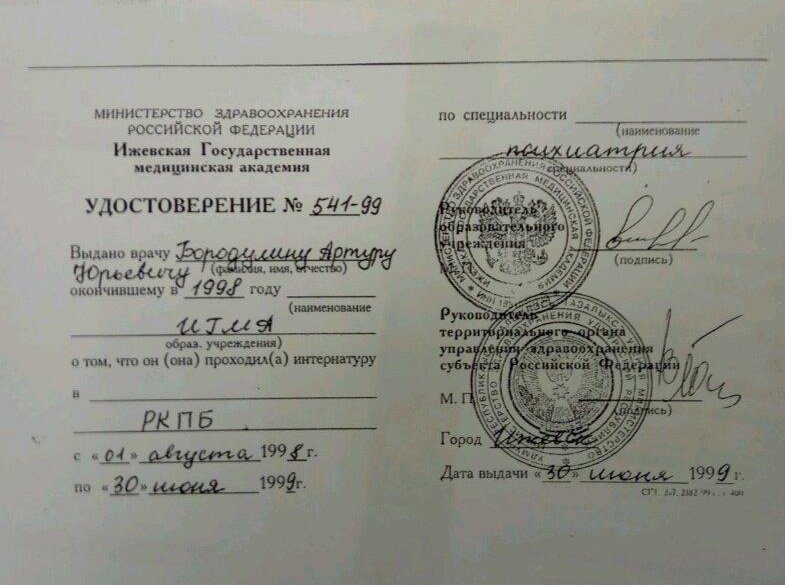 МИНИСТЕРСТВО ЗДРАВООХРАНЕНИЯ
РОССИЙСКОЙ ФЕДЕРАЦИИ
Ижевская Государственная
медицинская академия
УДОСТОВЕРЕНИЕ № 541-99
Выдано врачу Бородулину Артуру
Юрьевичу (фамилия, имя, отчество)
окончившему в 1998 году
(наименование
ИГМА
образ. учреждения)
о том, что он (она) проходил(а) интернатуру
в
РКПБ
с «01» августа 1998 г.
по «30» июня 1999 г.
по специальности
(наименование
психиатрия
специальности)
Руководитель
образовательного
учреждения
(подпись)
Руководитель
территориального органа
управления здравоохранения
субъекта Российской Федерации
М. П.
(подпись)
Город Ижевск
Дата выдачи «30» июня 1999 г.